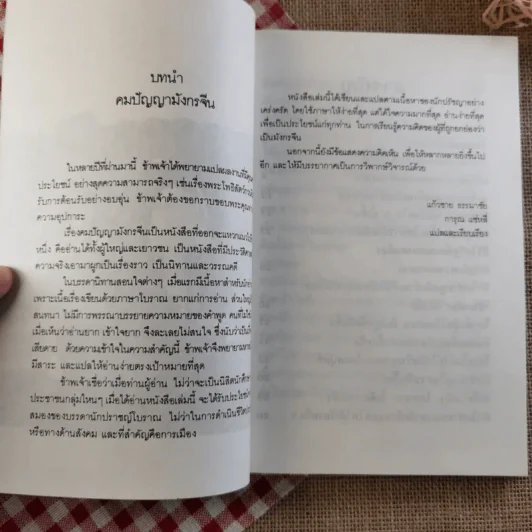 บทนำ
คมปัญญามังกรจีน
ในหลายปีที่ผ่านมานี้ ข้าพเจ้าได้พยายามแปลผลงานที่มีคุณ
ประโยชน์ อย่างสุดความสามารถจริงๆ เช่นเรื่องพระโพธิสัตว์กวนอิม
รับการต้อนรับอย่างอบอุ่น ข้าพเจ้าต้องขอกราบขอบพระคุณทุก
ความอุปการะ
เรื่องคมปัญญามังกรจีนเป็นหนังสือที่ออกจะแหวกแนวไป
หนึ่ง คืออ่านได้ทั้งผู้ใหญ่และเยาวชน เป็นหนังสือที่มีประวัติศาสตร์
ความจริงเอามาผูกเป็นเรื่องราว เป็นนิทานและวรรณคดี
ในบรรดานิทานสอนใจต่างๆ เมื่อแรกมีเนื้อหาสำหรับ
เพราะเนื้อเรื่องเขียนด้วยภาษาโบราณ ยากแก่การอ่าน ส่วนใหญ่
สนทนา ไม่มีการพรรณาบรรยายความหมายของคำพูด คนที่
เมื่อเห็นว่าอ่านยาก เข้าใจยาก จึงละเลยไม่สนใจ ซึ่งนับว่าเป็น
เสียดาย ด้วยความเข้าใจในความสำคัญนี้ ข้าพเจ้าจึงพยายาม
มีสาระ และแปลให้อ่านง่ายตรงเป้าหมายที่สุด
ข้าพเจ้าเชื่อว่าเมื่อท่านผู้อ่าน ไม่ว่าจะเป็นนิสิตนักศึกษา
ประชาชนกลุ่มไหนๆ เมื่อได้อ่านหนังสือเล่มนี้ จะได้รับประโยชน์
สมองของบรรดานักปราชญ์โบราณ ไม่ว่าในการดำเนินชีวิต
หรือทางด้านสังคม และที่สำคัญคือการเมือง
หนังสือเล่มนี้ได้เขียนและแปลตามเนื้อหาของนักปรัชญาอย่าง
เคร่งครัด โดยใช้ภาษาให้ง่ายที่สุด แต่ได้ใจความมากที่สุด อ่านง่ายที่สุด
เพื่อเป็นประโยชน์แก่ทุกท่าน ในการเรียนรู้ความคิดของผู้ที่ถูกยกย่องว่า
เป็นมังกรจีน
นอกจากนี้ยังมีข้อแสดงความคิดเห็น เพื่อให้หลากหลายยิ่งขึ้นไป
อีก และให้มีบรรยากาศเป็นการวิพากษ์วิจารณ์ด้วย
แก้วชาย ธรรมาชัย
การุณ แซ่หลี
แปลและเรียบเรียง